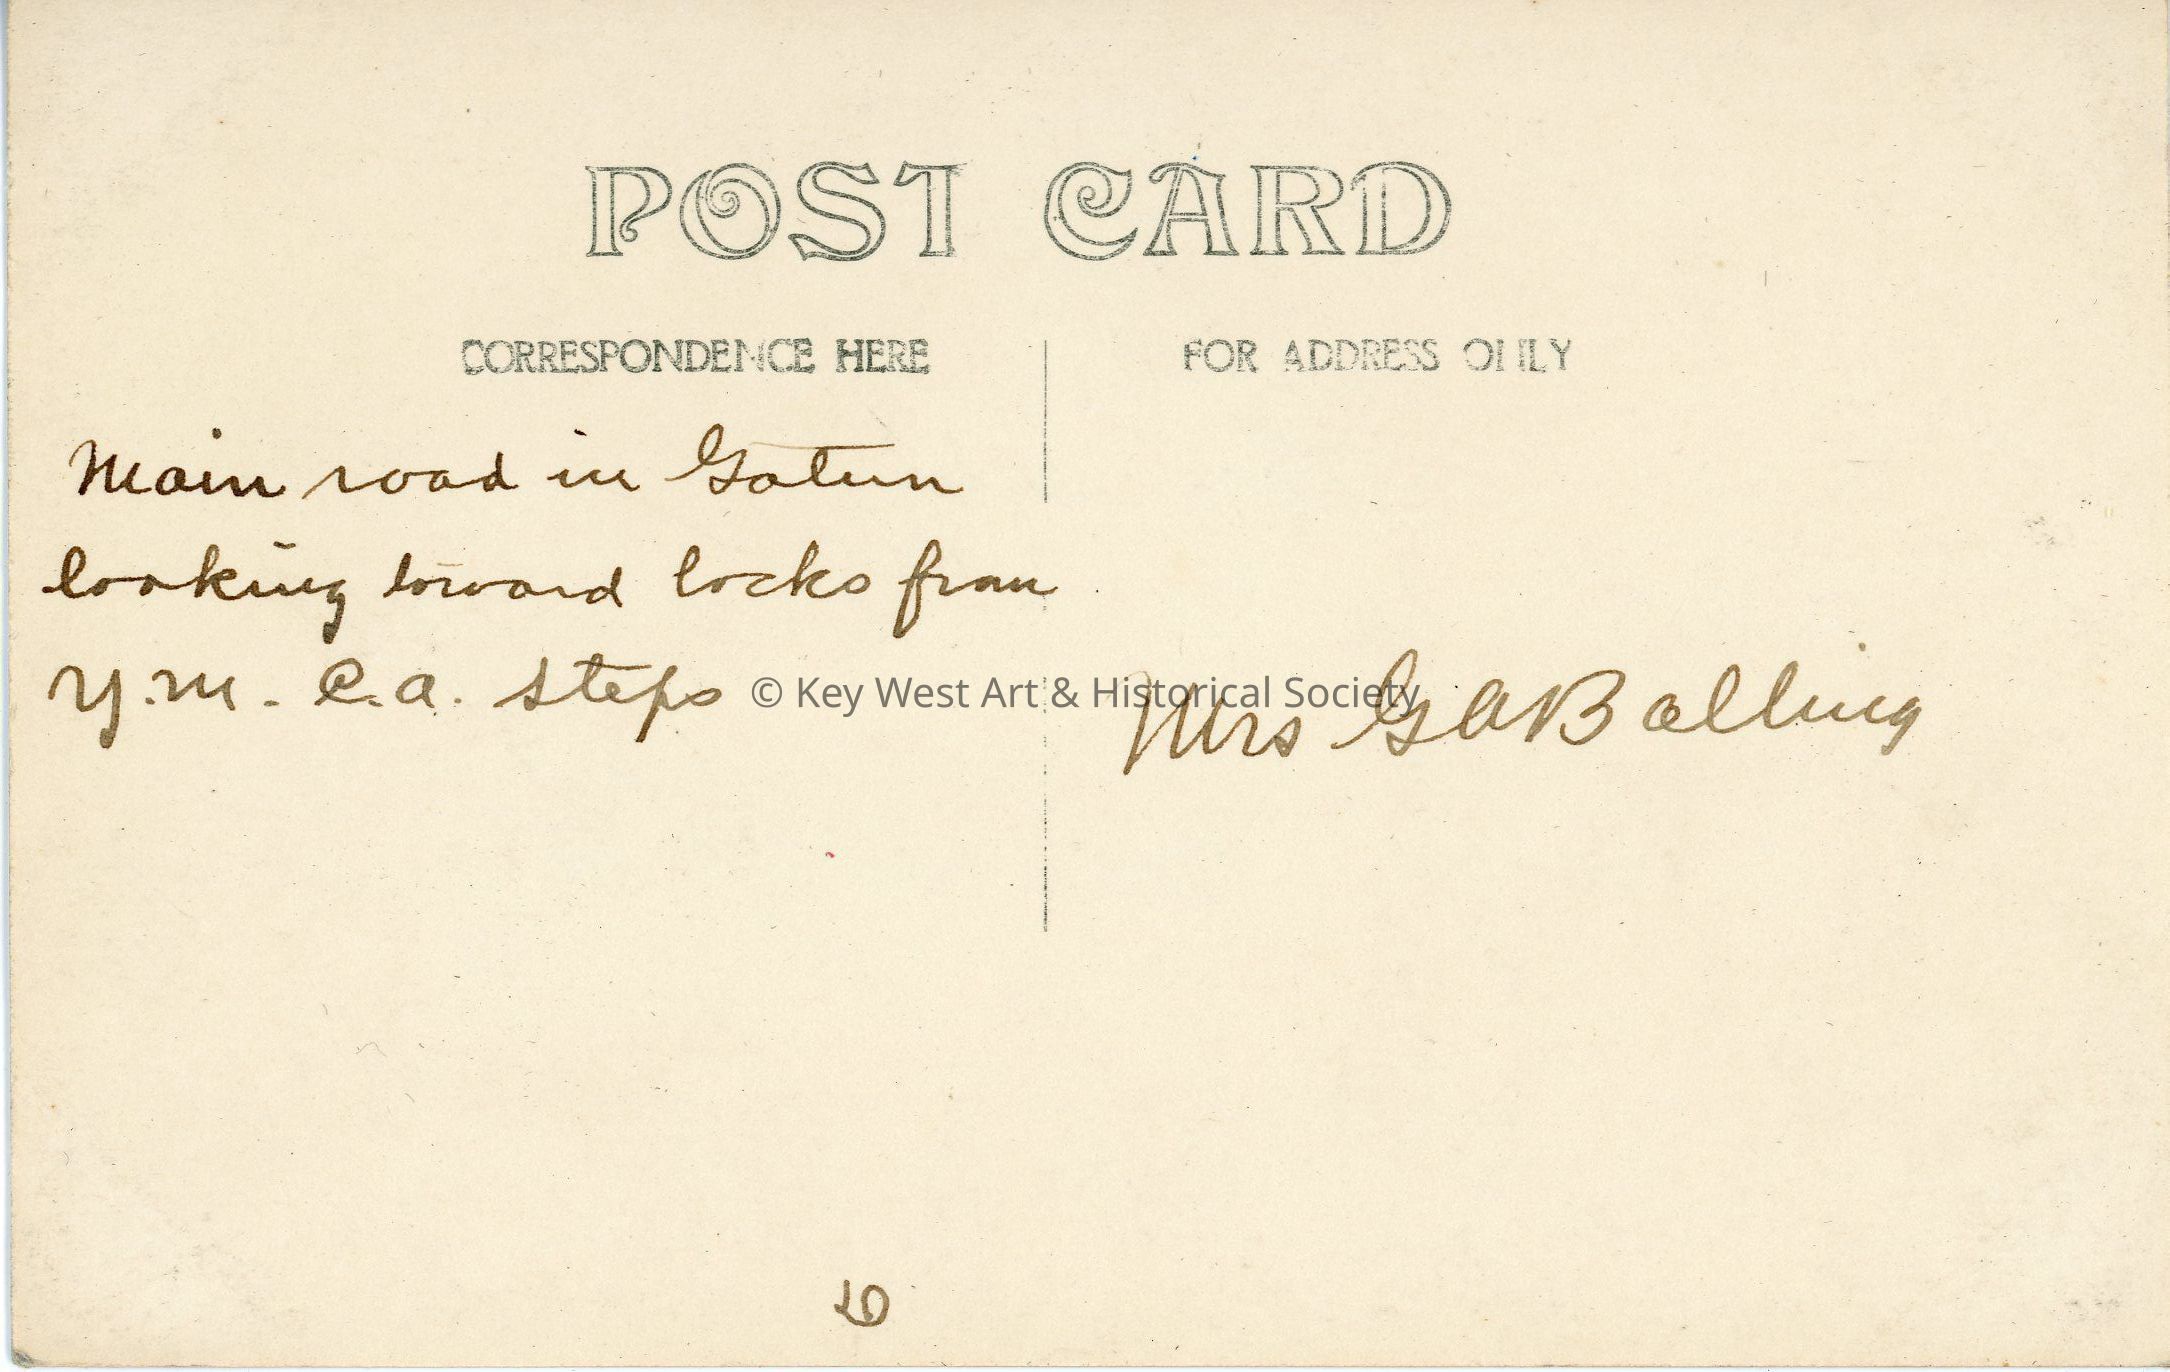 POST CARD
CORRESPONDENCE HERE
FOR ADDRESS ONLY
Main road in Gatun
looking toward locks from
Y.M.C.A. steps
© Key West Art & Historical Society
Mrs G A Bolling